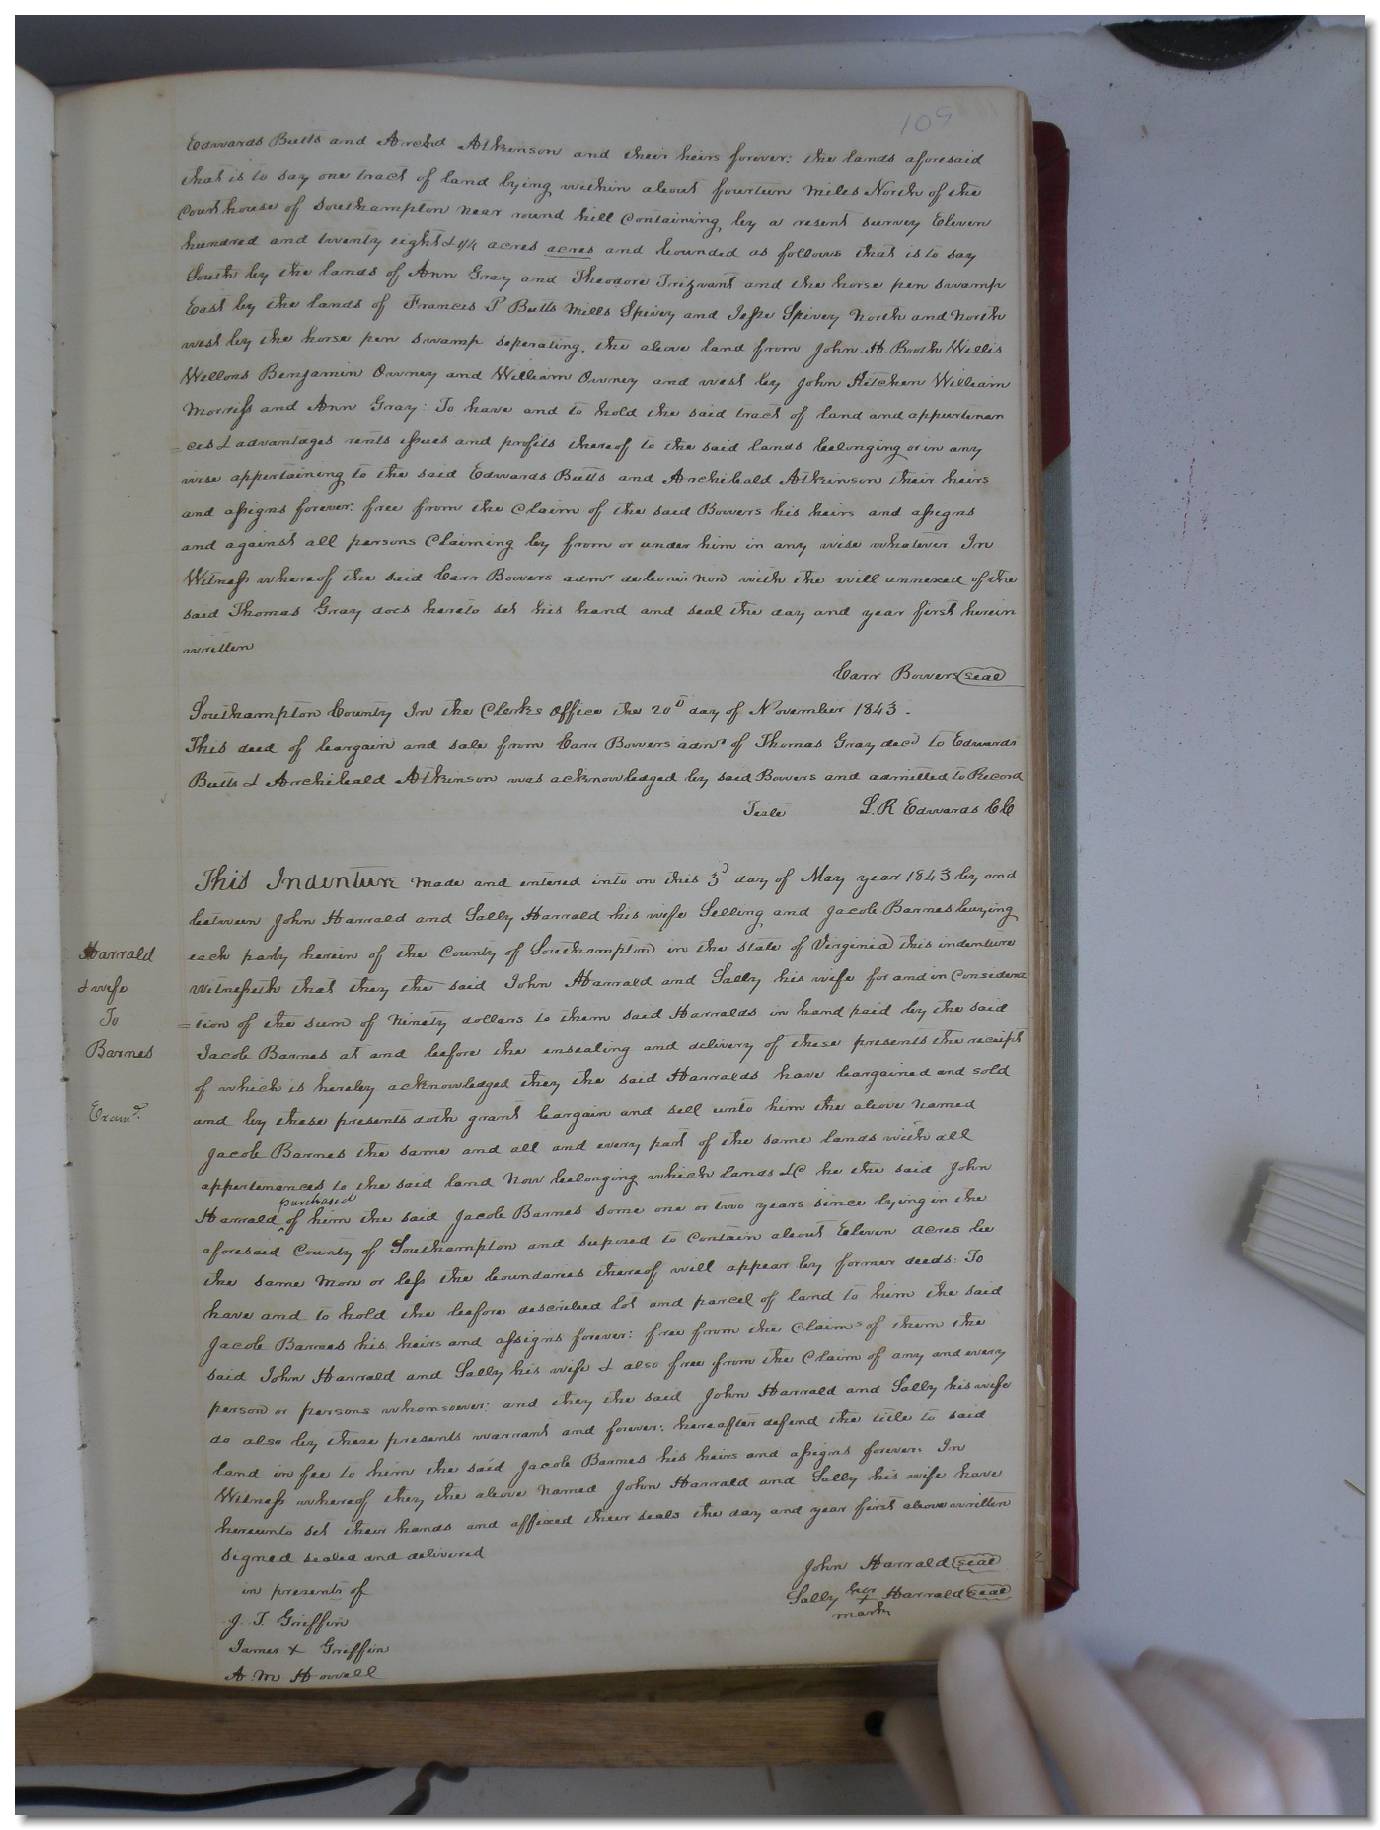 109
Edwards Butts and Archd Atkinson and their heirs forever: the lands aforesaid
that is to say one tract of land lying within about fourteen miles North of the
Courthouse of Southampton near round hill Containing, by a resent survey Eleven
hundred and twenty eight & 1/4 acres acres and bounded as follows that is to say
South by the lands of Ann Gray and Theodore Trizvant and the horse pen swamp
East by the lands of Frances P Butts Mills Spivey and Jesse Spivey North and North
west by the horse pen swamp seperating, the above land from John H. Booth Willis
Wellons Benjamin Owney and William Owney and west by John Kitchen William
Morriss and Ann Gray: To have and to hold the said tract of land and appurtenan
=ces & advantages rents issues and profits thereof to the said lands belonging or in any
wise appertaining to the said Edwards Butts and Archibald Atkinson their heirs
and assigns forever: free from the Claim of the said Bowers his heirs and assigns
and against all persons Claiming by from or under him in any wise whatever In
Witness whereof the said Carr Bowers admr de bonis non with the will annexed of the
said Thomas Gray does hereto set his hand and seal the day and year first herein
written
Carr Bowers seal
Southampton County In the Clerks Office the 20th day of November 1843.
This deed of bargain and sale from Carr Bowers admr of Thomas Gray decd to Edwards
Butts & Archibald Atkinson was acknowledged by said Bowers and admitted to Record
Teste L. R Edwards CC
This Indenture made and entered into on this 3d day of May year 1843 by and
between John Harrald and Sally Harrald his wife Selling and Jacob Barnes buying
Harrald
each party herein of the County of Southampton in the state of Virginia this indenture
& wife
witnesseth that they the said John Harrald and Sally his wife for and in Considera
To
=tion of the sum of Ninety dollars to them said Harralds in hand paid by the said
Barnes
Jacob Barnes at and before the ensealing and delivery of these presents the receipt
of which is hereby acknowledged they the said Harralds have bargained and sold
Examd.
and by these presents doth grant bargain and sell unto him the above Named
Jacob Barnes the same and all and every part of the same lands with all
appertenences to the said land Now belonging which lands &C he the said John
purchased
Harrald of him the said Jacob Barnes some one or two years since lying in the
aforesaid County of Southampton and suposed to Contain about Eleven acres be
the same More or less the boundaries thereof will appear by former deeds: To
have and to hold the before described lot and parcel of land to him the said
Jacob Barnes his heirs and assigns forever: free from the Claims of them the
said John Harrald and Sally his wife & also free from the Claim of any and every
person or persons whomsoever: and they the said John Harrald and Sally his wife
do also by these presents warrant and forever: hereafter defend the title to said
land in fee to him the said Jacob Barnes his heirs and assigns forever: In
Witness whereof they the above Named John Harrald and Sally his wife have
hereunto set their hands and affixed their seals the day and year first above written
Signed sealed and delivered
John Harrald seal
in presents of
Sally her x Harrald seal
mark
J. T. Griffin
James x Griffin
A M Howell